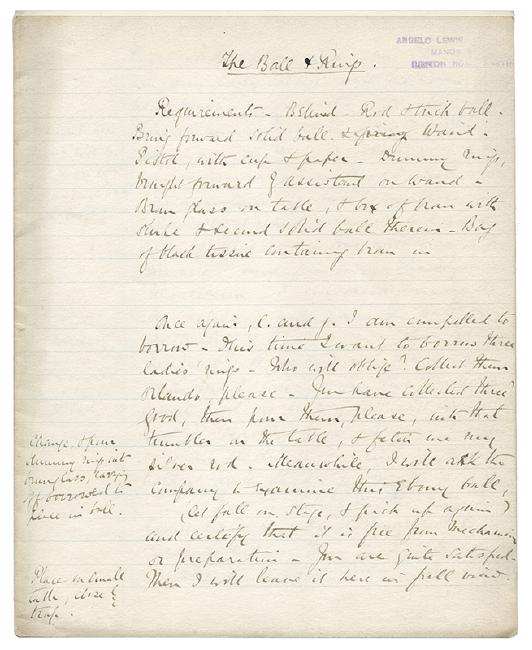 The Ball & Rings.
ANGELO LEWIS
MANOR
Requirements - Behind - Rod & trick ball -
Bring forward solid ball. & Wand -
Pistol, with cup & paper - Dummy rings,
brought forward by assistant on wand -
Bran glass on table, & box of bran with
& second solid ball therein - Bag
of black tissue containing bran in
Once again, l. and g. I am compelled to
borrow - This time I want to borrow three
ladies' rings - Who will oblige? Collect them
Orlando, please - You have collected three?
Good, then pour them, please, into that
tumbler on the table, & fetch me my
silver rod. - Meanwhile, I will ask the
company to examine this Ebony ball,
(let fall on stage, & pick up again)
and certify that it is free from mechanism
or preparation - You are quite satisfied -
Then I will leave it here in full view.
Change, & pour
dummy rings into
own glass, carrying
off borrowed to
place in ball.
Place on small
table, close by